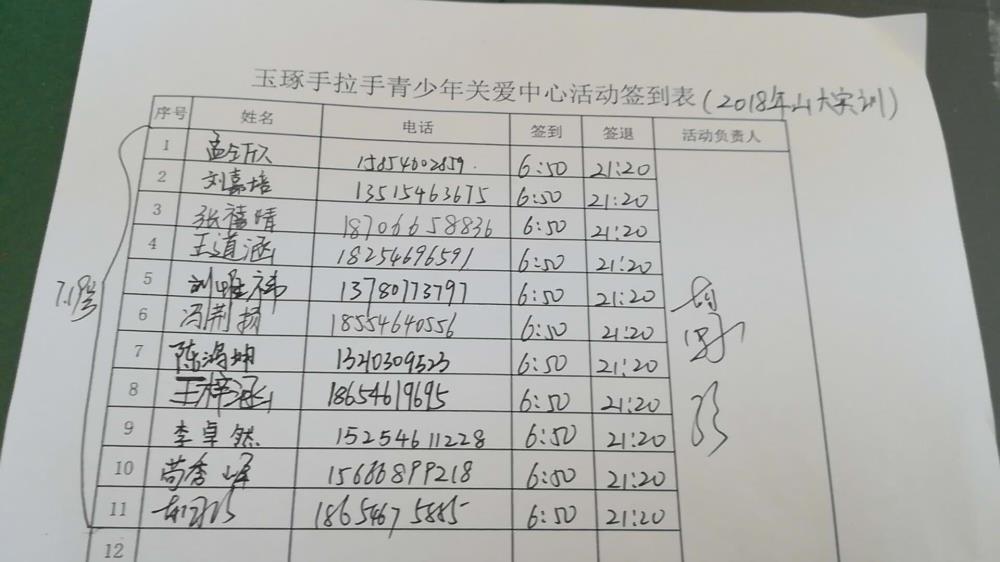 玉琢手拉手青少年关爱中心活动签到表(2018年山大实训)
序号 姓名 电话 签到 签退 活动负责人
1 15854602859 6:50 21:20
2 刘嘉培 13515463675 6:50 21:20
3 张禧晴 18706658836 6:50 21:20
4 王道涵 18254696591 6:50 21:20
5 13780773797 6:50 21:20
6 冯荆扬 18554640556 6:50 21:20
7 陈鸿坤 13210309523 6:50 21:20
8 王梓涵 18654619695 6:50 21:20
9 李卓然 15254611228 6:50 21:20
10 苟秀峰 15666899218 6:50 21:20
11 18654675885 6:50 21:20
12